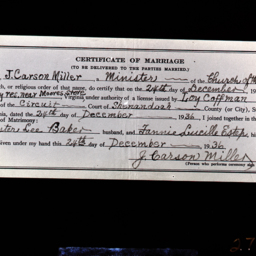 CERTIFICATE OF MARRIAGE
(TO BE DELIVERED TO THE PARTIES MARRIED.)
J. Carson Miller a Minister of the Church of the
ch, or religious order of that name, do certify that on the 24th day of December, 19
res. near Moores Store Virginia, under authority of a license issued by Loy Coffman
of the Circuit Court of Shenandoah County (or City), S
nia, dated the 24th day of December 1936, I joined together in the
of Matrimony:
Lee Baker husband, and Fannie Lucille Estep
iven under my hand this 24th day of December 1936
J Carson Miller
(Person who performs ceremony
27